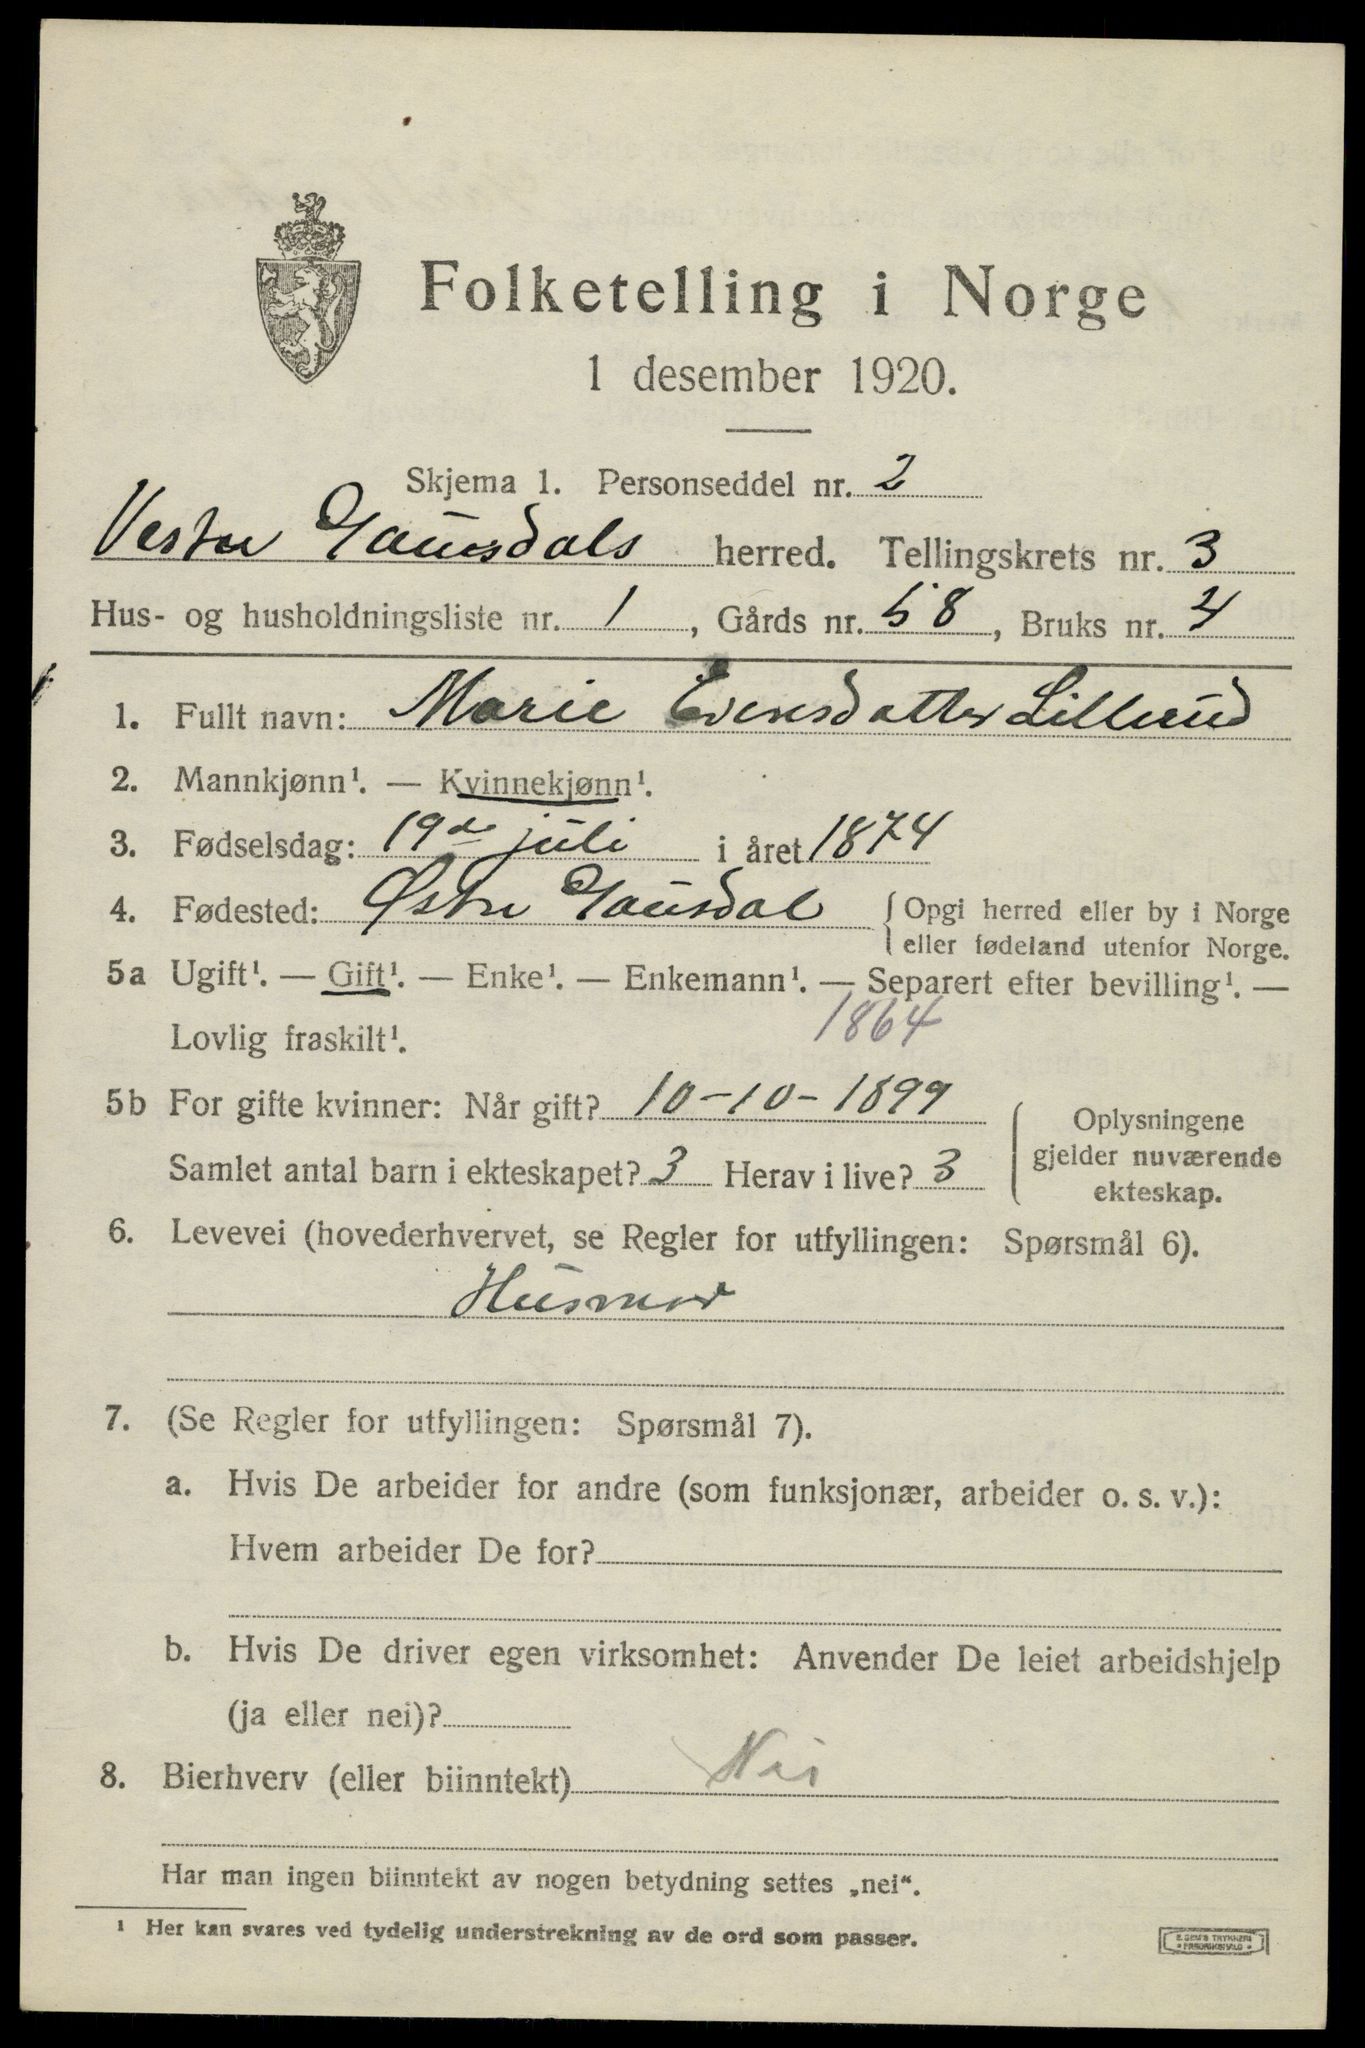 Folketelling i Norge
1 desember 1920.
Skjema 1. Personseddel nr. 2
Vestre Gausdals herred. Tellingskrets nr. 3
Hus- og husholdningsliste nr. 1, Gårds nr. 58, Bruks nr. 4
1. Fullt navn: Marie Evensdatter Lillerud
2. Mannkjønn¹. — Kvinnekjønn¹.
3. Fødselsdag: 19de juli i året 1874
4. Fødested: Østre Gausdal { Opgi herred eller by i Norge
eller fødeland utenfor Norge.
5a Ugift¹. — Gift¹. — Enke¹. — Enkemann¹. — Separert efter bevilling¹. —
Lovlig fraskilt¹. 1864
5b For gifte kvinner: Når gift? 10-10-1899
Samlet antal barn i ekteskapet? 3 Herav i live? 3
Oplysningene
gjelder nuværende
ekteskap.
6. Levevei (hovederhvervet, se Regler for utfyllingen: Spørsmål 6).
Husmor
7. (Se Regler for utfyllingen: Spørsmål 7).
a. Hvis De arbeider for andre (som funksjonær, arbeider o. s. v.):
Hvem arbeider De for?
b. Hvis De driver egen virksomhet: Anvender De leiet arbeidshjelp
(ja eller nei)?
8. Bierhverv (eller biinntekt) Nei
Har man ingen biinntekt av nogen betydning settes „nei“.
¹ Her kan svares ved tydelig understrekning av de ord som passer.